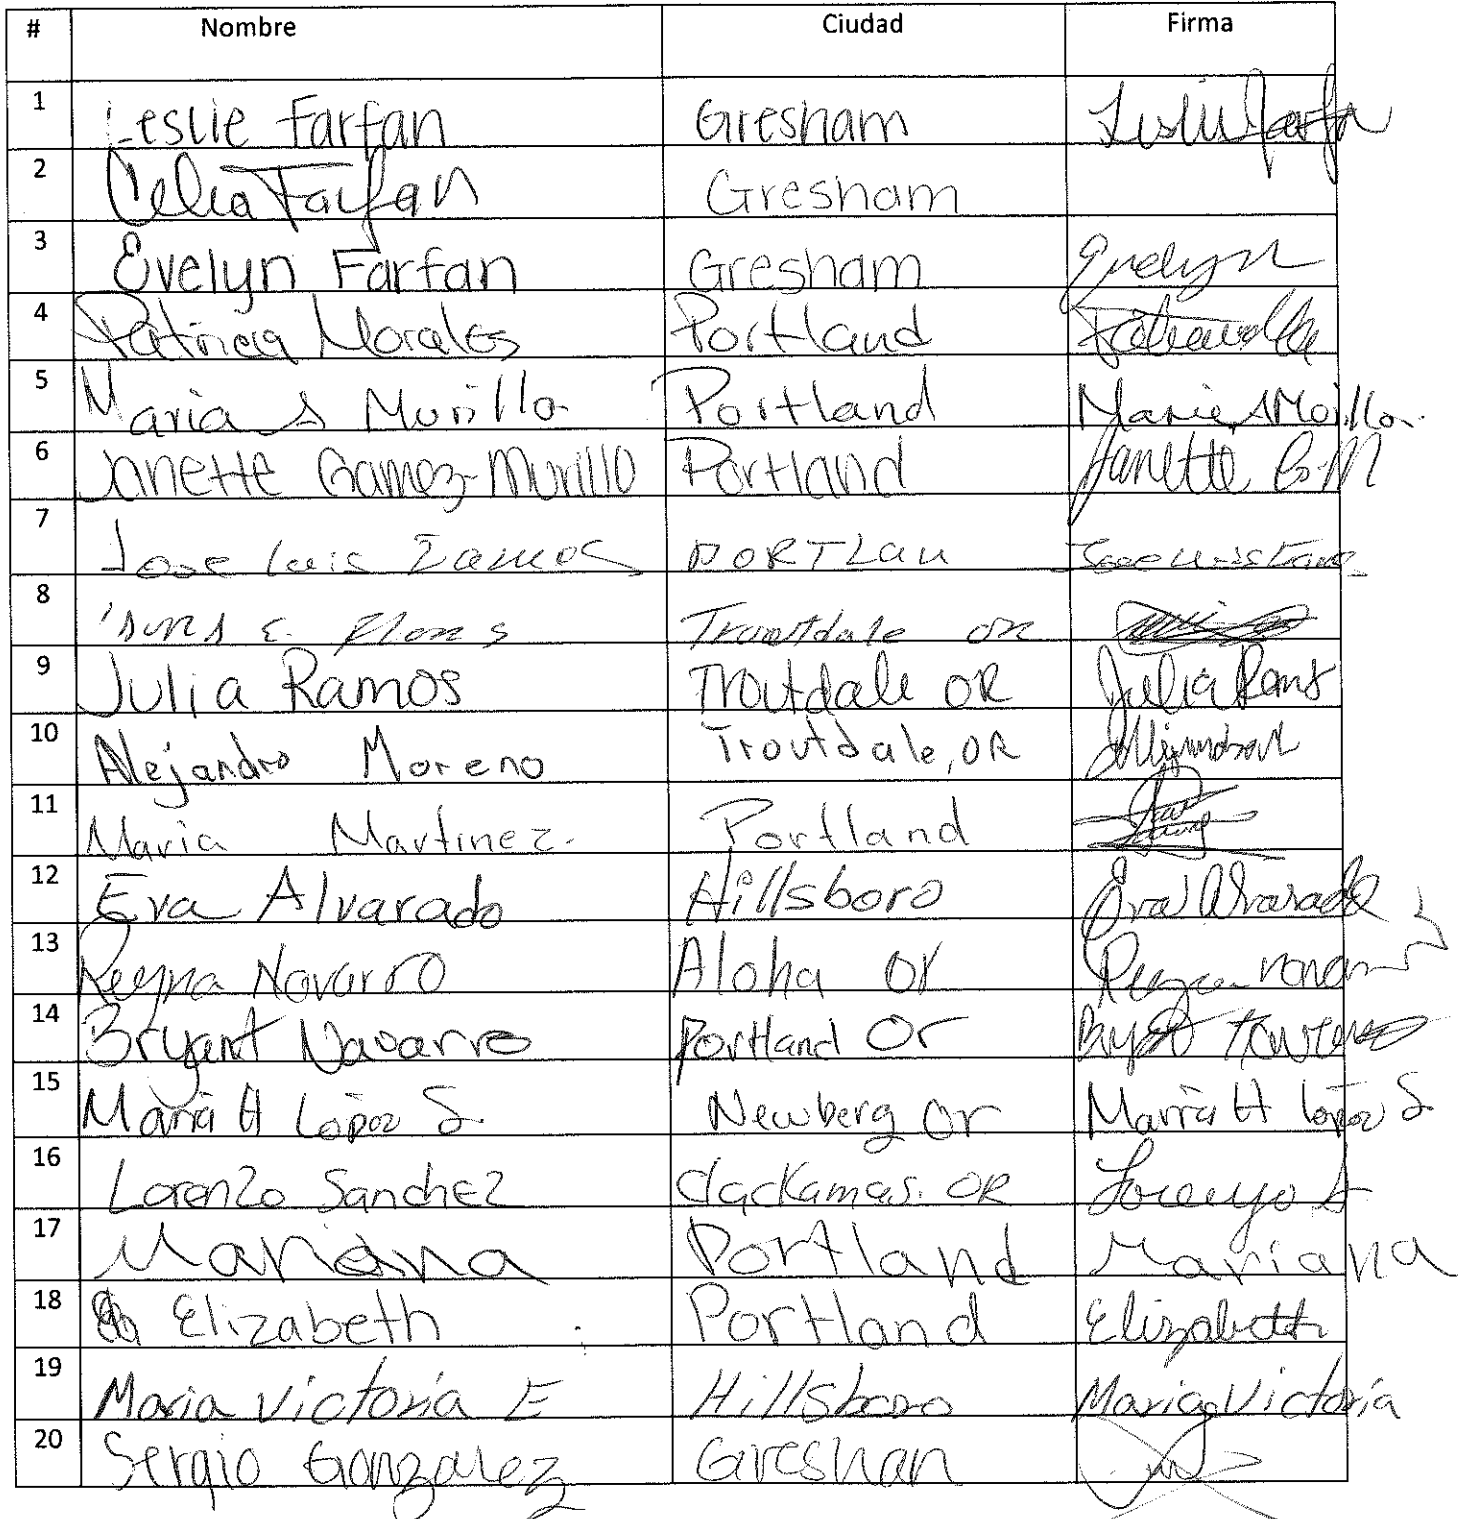 # Nombre Ciudad Firma
1 Leslie Farfan Gresham Leslie Farfan
2 Celia Farfan Gresham
3 Evelyn Farfan Gresham Evelyn
4 Patricia Morales Portland
5 Maria S Murillo Portland Maria S Morillo
6 Janette Gamez-Murillo Portland Janette G-M
7 Jose Luis Portlan
8 E. Troutdale OR
9 Julia Ramos Troutdale OR Julia Rams
10 Alejandro Moreno Troutdale, OR
11 Maria Martinez. Portland
12 Eva Alvarado Hillsboro Eva Alvarado
13 Reyna Navarro Aloha Or Reyna
14 Bryant Navarro Portland Or
15 Maria H López S Newberg Or Maria H López S
16 Lorenzo Sanchez Clackamas. OR Lorenzo S
17 Mariana Portland Mariana
18 Elizabeth Portland Elizabeth
19 Maria Victoria E Hillsboro Maria Victoria
20 Sergio Gonzalez Greshan